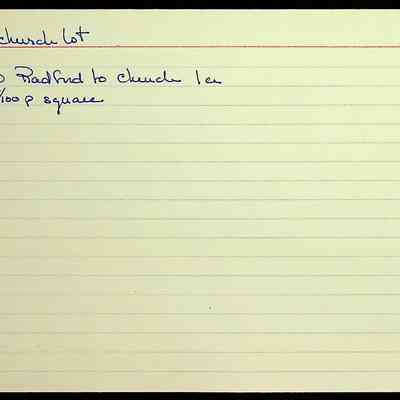 church lot
Radford to church 1 a
/100 p square